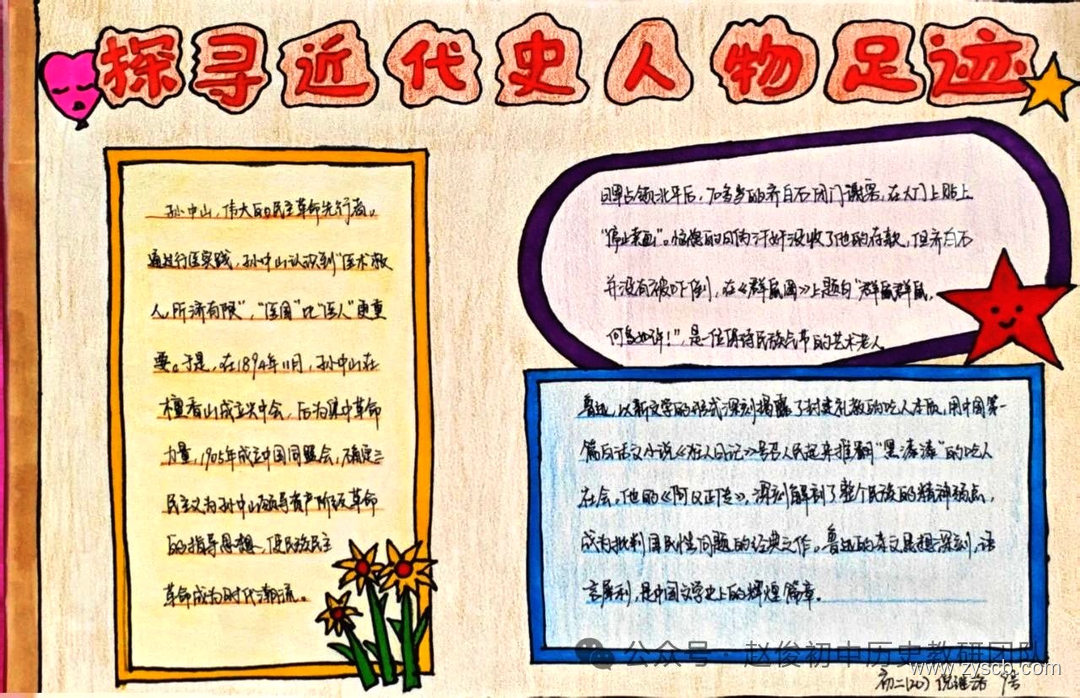 探寻近代史人物足迹
孙中山，伟大的民主革命先行者。
通过行医实践，孙中山认识到“医术救
人，所济有限”，“医国”比“医人”更重
要。于是，在1894年11月，孙中山在
檀香山成立兴中会，后为集中革命
力量，1905年成立中国同盟会，确定三
民主义为孙中山领导资产阶级革命
的指导思想，使民族民主
革命成为时代潮流。
日军占领北平后，70多岁的齐白石闭门谢客，在大门上贴上
“停止卖画”。恼怒的日伪汉奸没收了他的存款，但齐白石
并没有被吓倒，在《群鼠图》上题句“群鼠群鼠，
何多如许！”，是一位坚持民族气节的艺术老人。
鲁迅，以新文学的形式深刻揭露了封建礼教的吃人本质，用中国第一
篇白话文小说《狂人日记》号召人民起来推翻“黑漆漆”的吃人
社会。他的《阿Q正传》，深刻解剖了整个民族的精神弱点，
成为批判国民性问题的经典之作。鲁迅的杂文思想深刻，语
言犀利，是中国文学史上的辉煌篇章。
公众号·赵俊初中历史教研团队
www.zyscb.com
初二(20) 倪